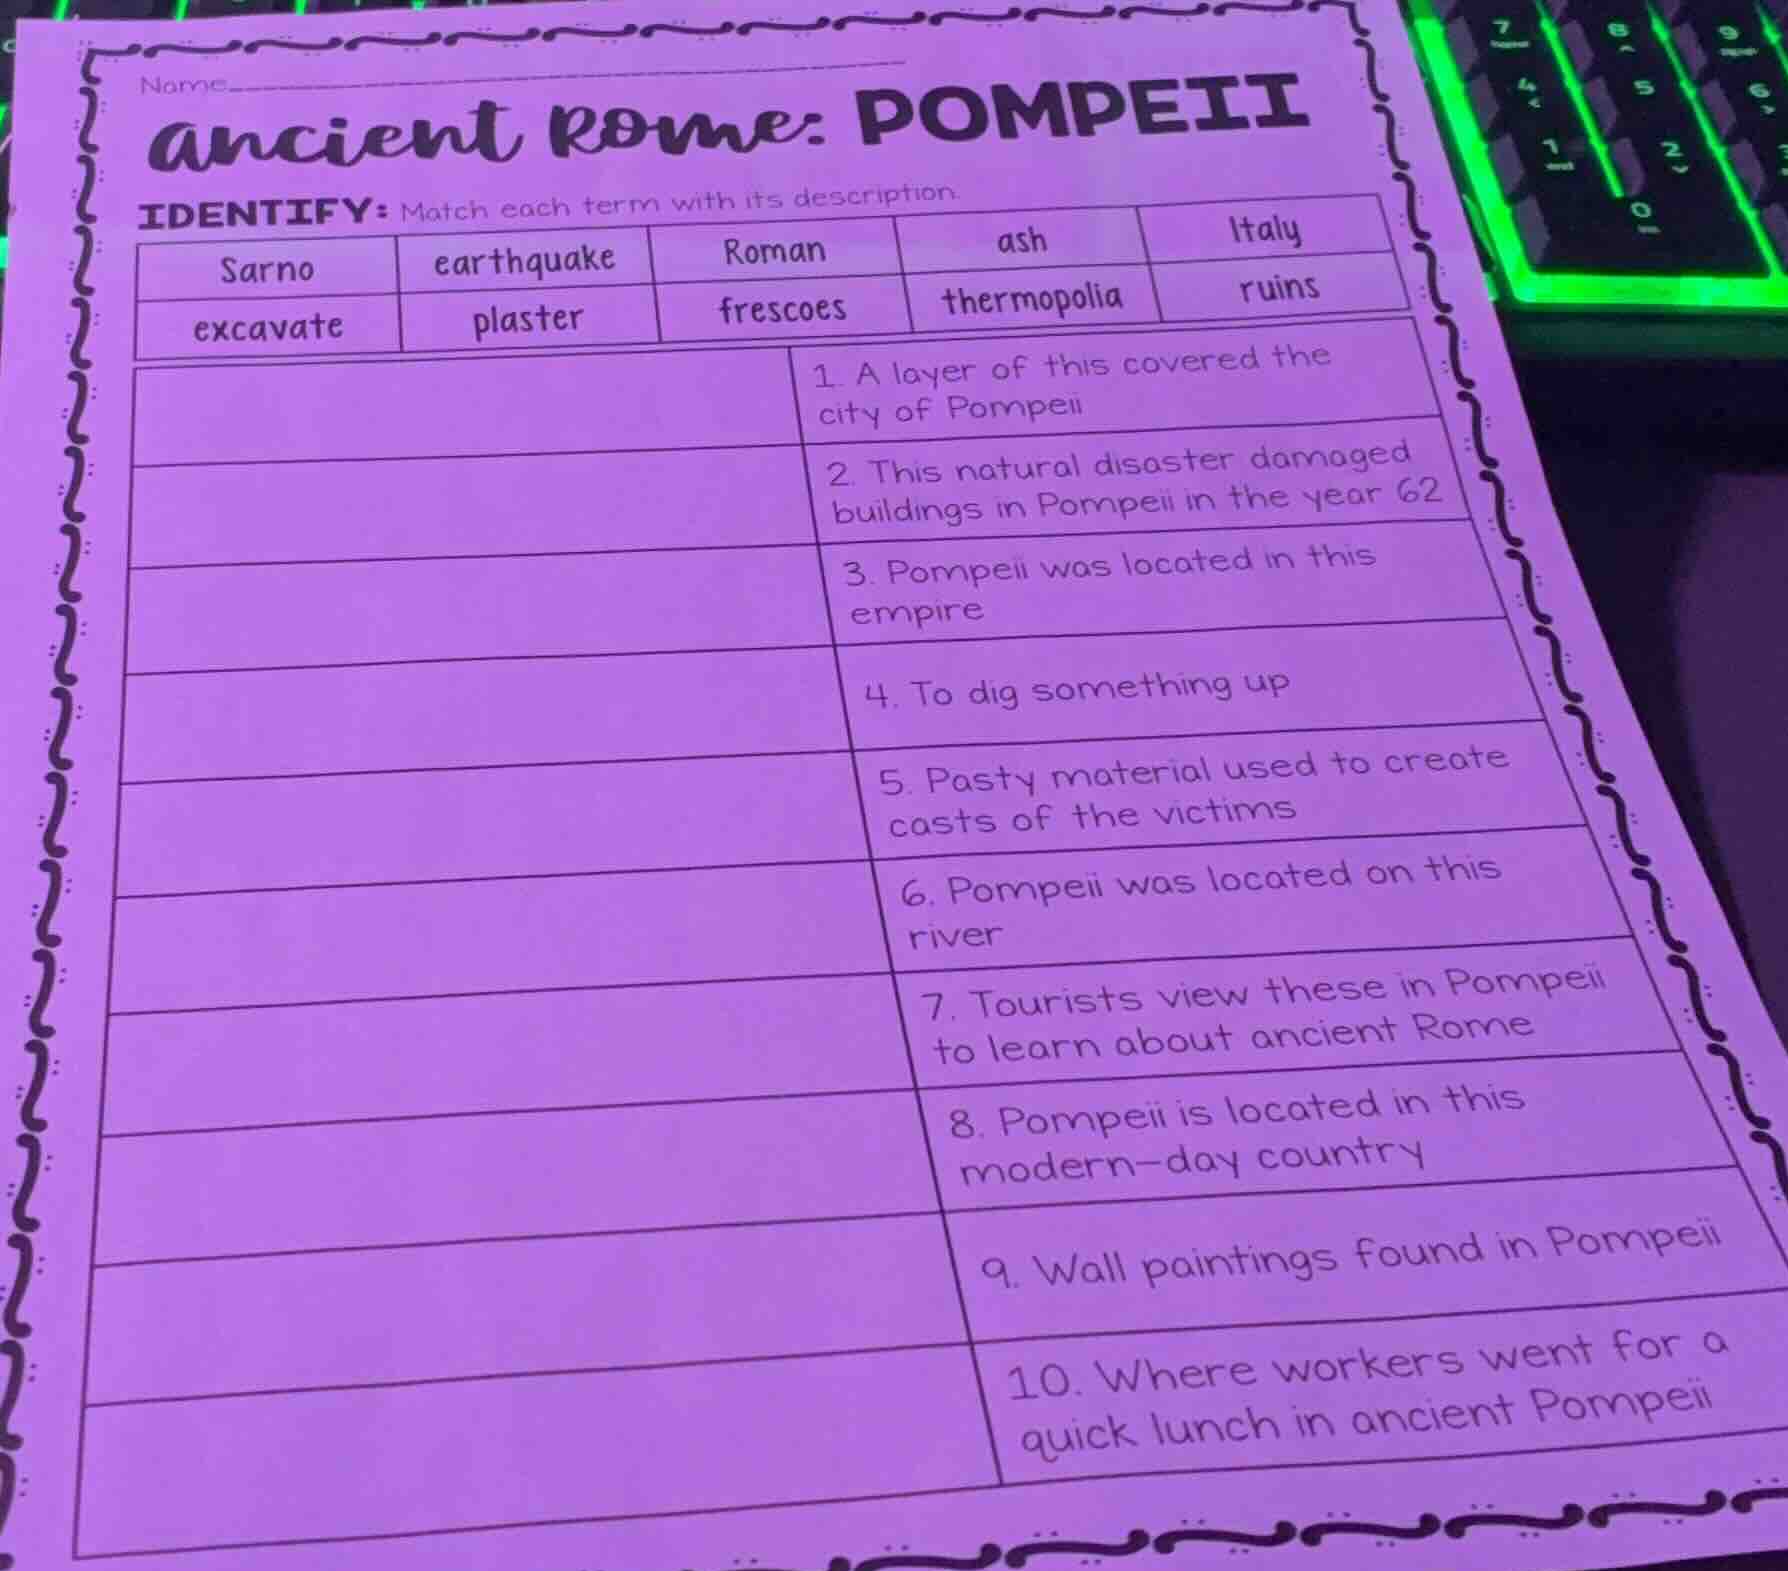 Name
ancient Rome: POMPEII
IDENTIFY: Match each term with its description.
Sarno earthquake Roman ash Italy
excavate plaster frescoes thermopolia ruins
1. A layer of this covered the
city of Pompeii
2. This natural disaster damaged
buildings in Pompeii in the year 62
3. Pompeii was located in this
empire
4. To dig something up
5. Pasty material used to create
casts of the victims
6. Pompeii was located on this
river
7. Tourists view these in Pompeii
to learn about ancient Rome
8. Pompeii is located in this
modern-day country
9. Wall paintings found in Pompeii
10. Where workers went for a
quick lunch in ancient Pompeii
7 8 9
4 5 6
1 2
0